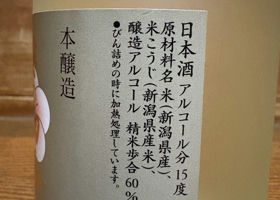 日本酒 アルコール分 15度
原材料名 米(新潟県産)、
米こうじ(新潟県産米)、
醸造アルコール 精米歩合 60%
●びん詰めの時に加熱処理しています。
本醸造